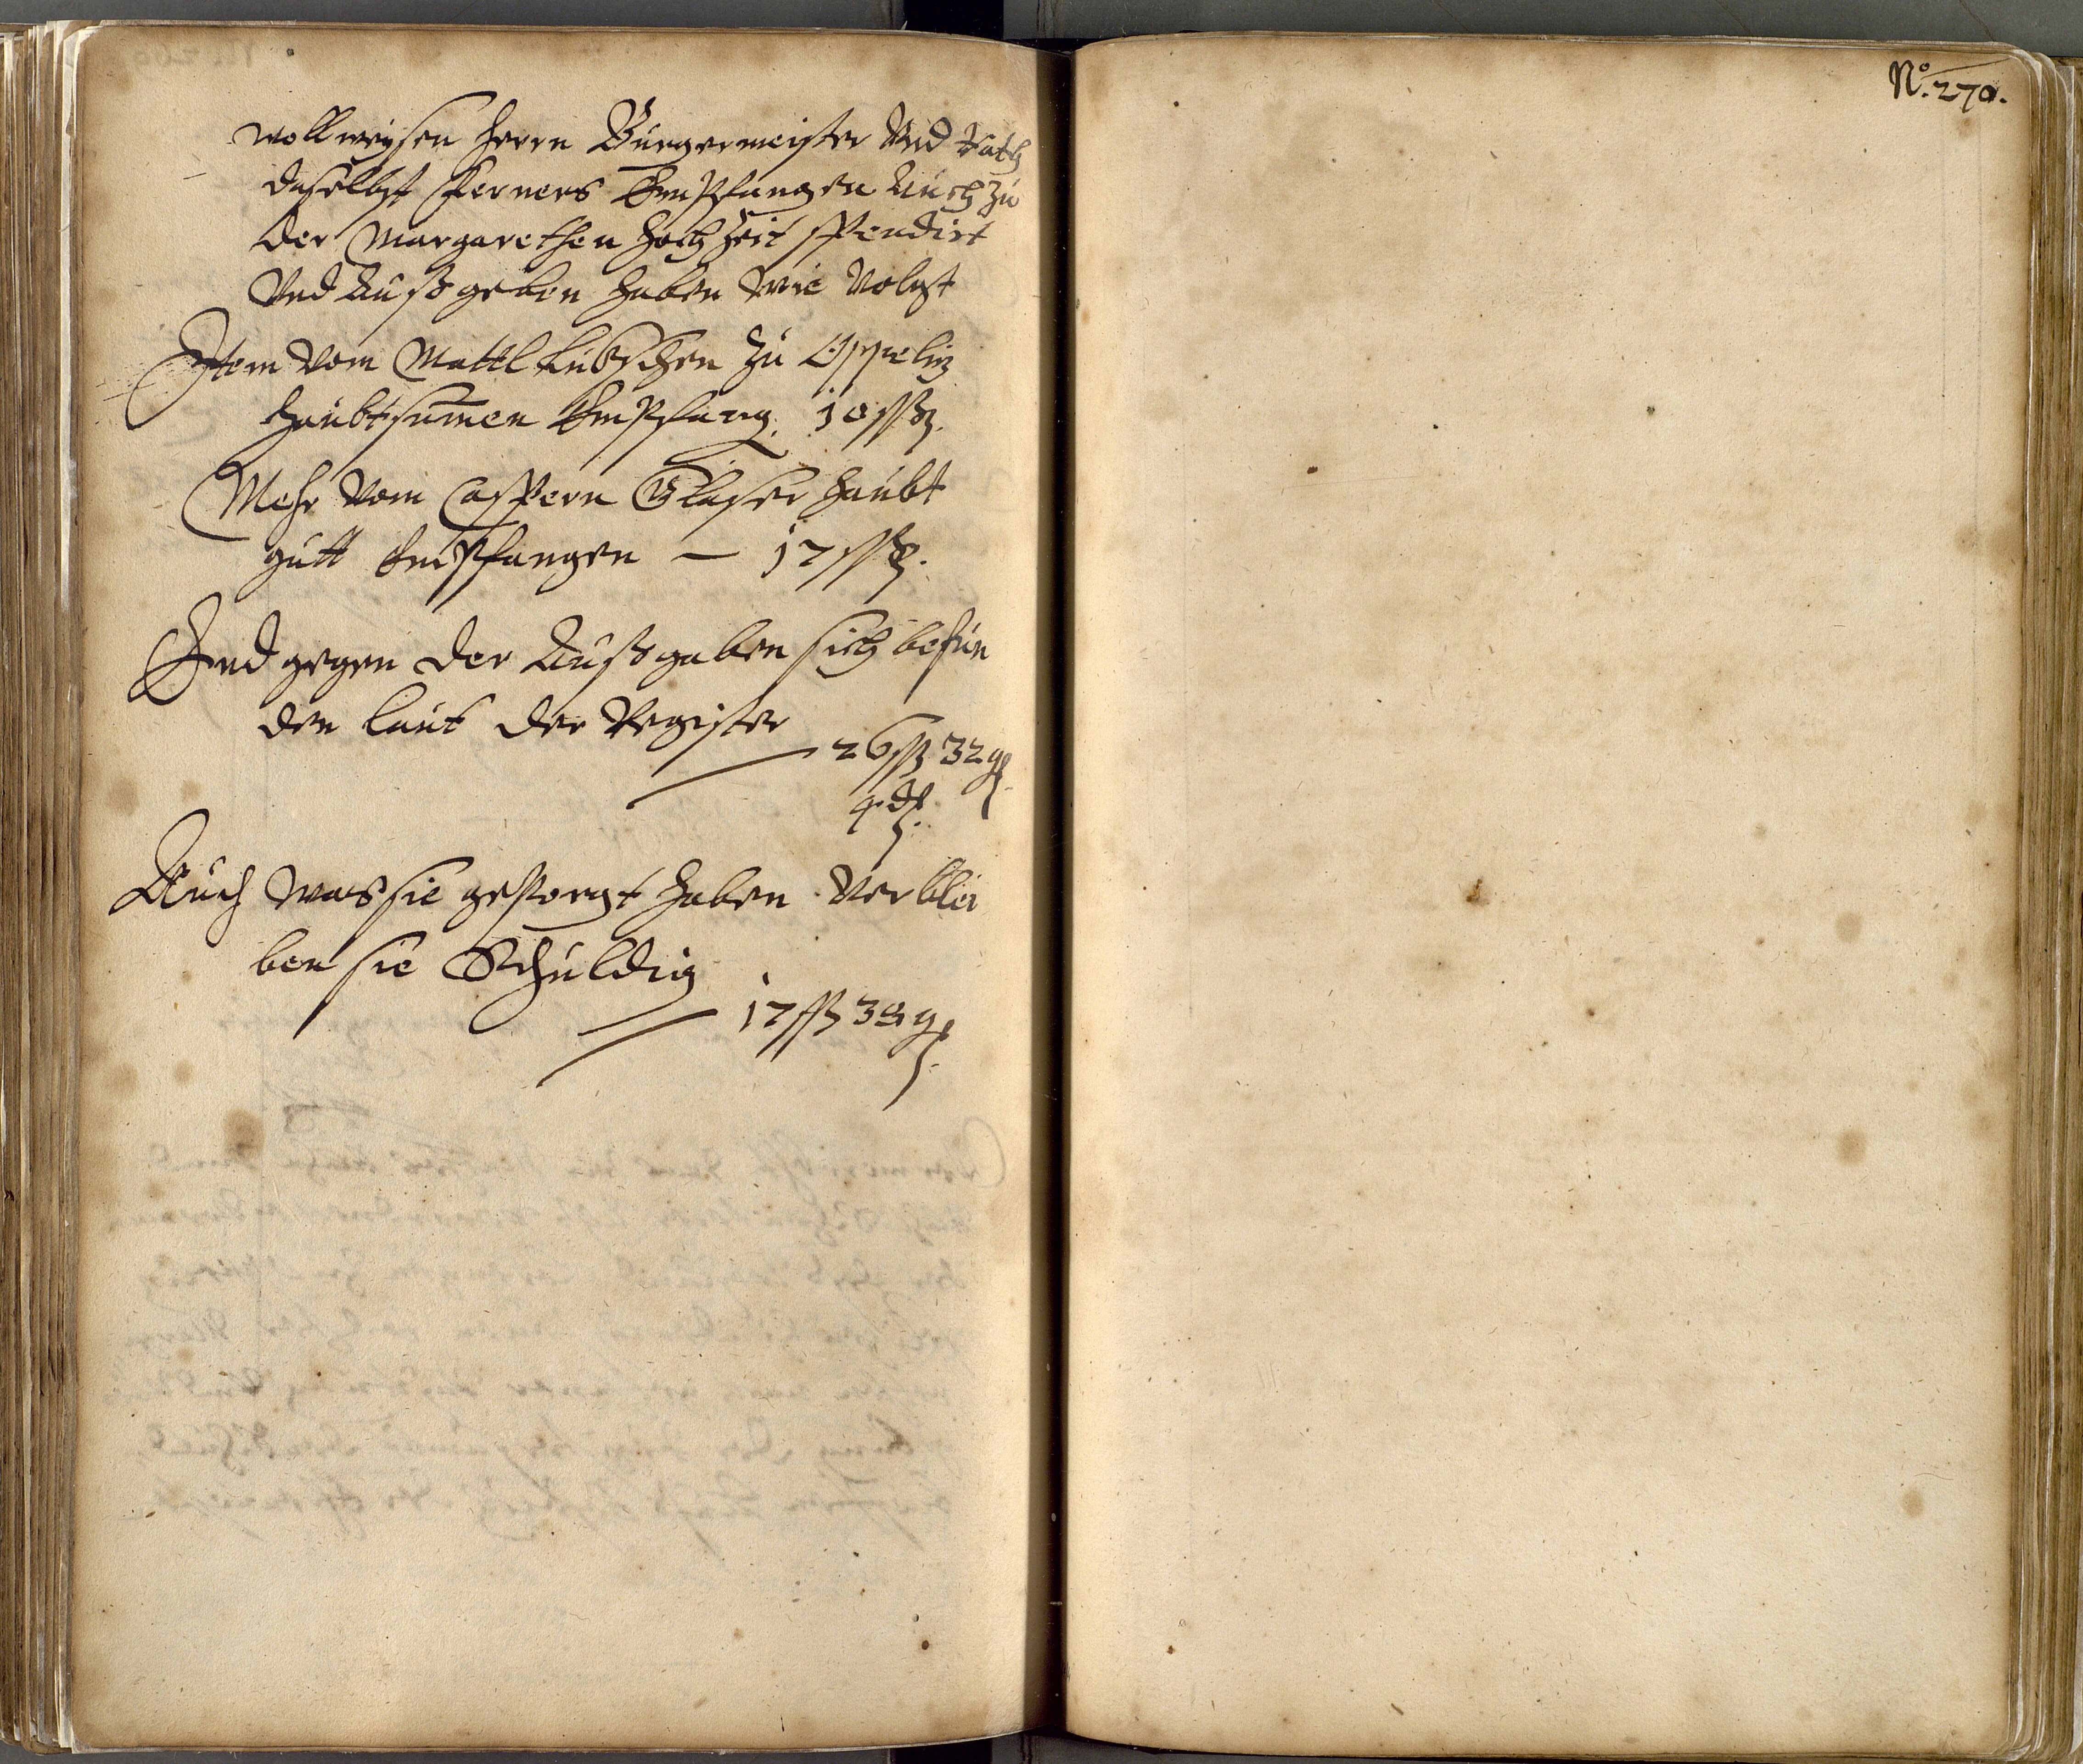 wollweysen herrn Burgermeister Vnd Rath
daselbst fferners Empfangen Auch zu
der Margarethen hochzeit spendirt
Vnd Außgeben haben wie Volgt
Item vom Mattl zu Oppelitz
haubtsumen Empfang. 10 ßß
Mehr vom Caspern Glaser haubt
gutt Empfangen — 17 ßß.
Endgegen der Außgaben sich befun
den laut der Register
— 26 ßß 32 g
4 d.
Auch was sie gesorgt haben Verblei
ben sie Schuldig
— 17 ßß g.
No. 270.